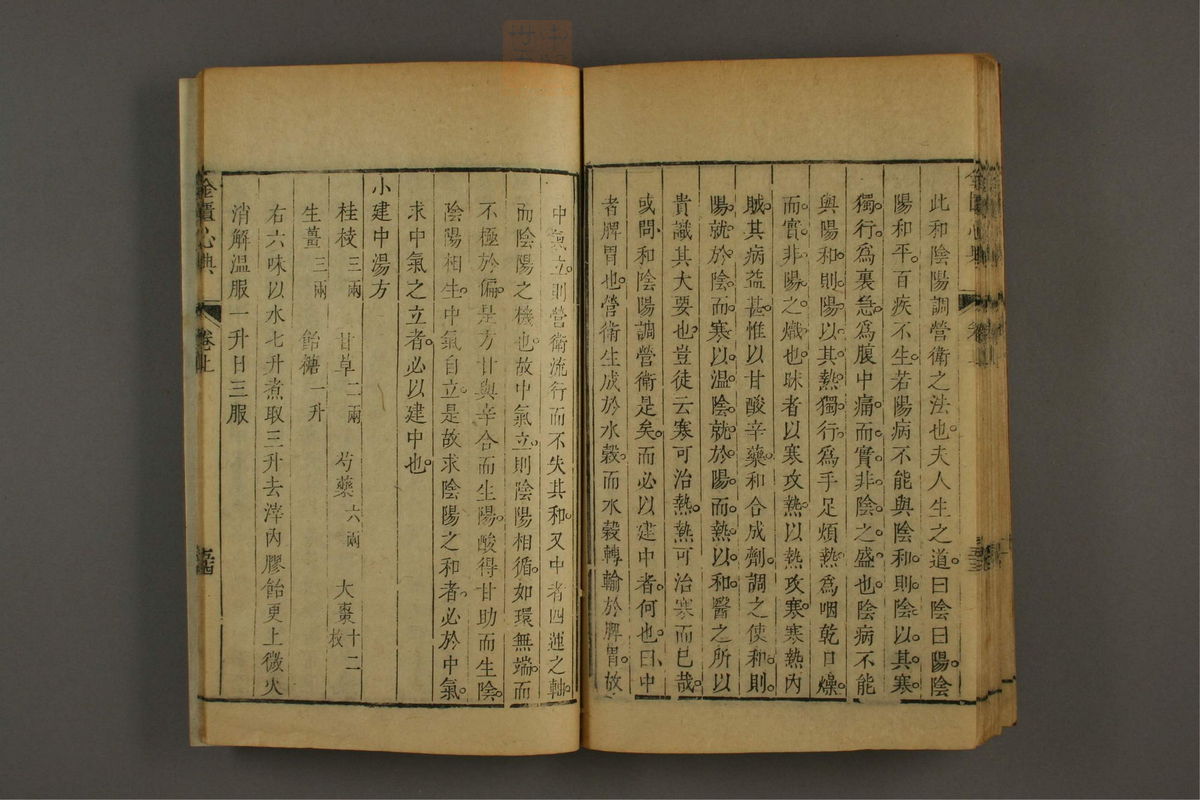 此和陰陽調營衛之法也。夫人生之道。曰陰曰陽。陰
陽和平。百疾不生。若陽病不能與陰和。則陰以其寒
獨行。為裏急。為腹中痛。而實非陰之盛也。陰病不能
與陽和。則陽以其熱獨行。為手足煩熱。為咽乾口燥。
而實非陽之熾也。昧者以寒攻熱。以熱攻寒。寒熱內
賊。其病益甚。惟以甘酸辛藥。和合成劑。調之使和。則
陽就於陰。而寒以溫。陰就於陽。而熱以和。醫之所以
貴識其大要也。豈徒云寒可治熱。熱可治寒而已哉。
或問、和陰陽調營衛是矣。而必以建中者。何也。曰、中
者脾胃也。營衛生成於水穀。而水穀轉輸於脾胃。故
中氣立。則營衛流行而不失其和。又中者四運之軸。
而陰陽之機也。故中氣立。則陰陽相循。如環無端。而
不極於偏。是方甘與辛合而生陽。酸得甘助而生陰。
陰陽相生。中氣自立。是故求陰陽之和者。必於中氣。
求中氣之立者。必以建中也。
小建中湯方
桂枝三兩 甘草二兩 芍藥六兩 大棗十二枚
生薑三兩 飴糖一升
右六味以水七升煮取三升去滓內膠飴更上微火
消解溫服一升日三服
金匱心典 卷上